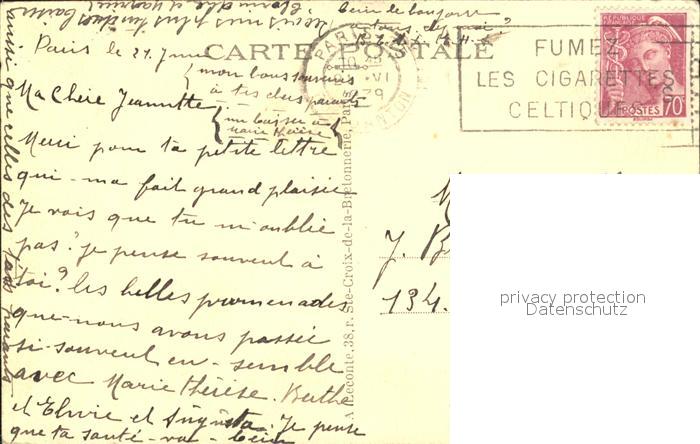 CARTE POSTALE
Paris le 21 Juin
mon bons souvenirs
à tes chers parents
Ma Chère Jeannette
un baiser à
Marie Thérèse
Merci pour ta petite lettre
qui - ma fait grand plaisir
Je vois que tu m'oublie
pas? je pense souvent à
toi? les belles promenades
que - nous avons passée
si - souvent en - semble
avec Marie Thérèse. Berthe
et Elvire et Augusta. Je pense
que ta santé - va - bien
aussi que celles des tes parents
A. Leconte, 38, r. Ste-Croix-de-la-Bretonnerie, Paris
PARIS
VI
FUMEZ
LES CIGARETTES
CELTIQUE
REPUBLIQUE FRANCAISE
POSTES
70
J. B
134.
privacy protection
Datenschutz